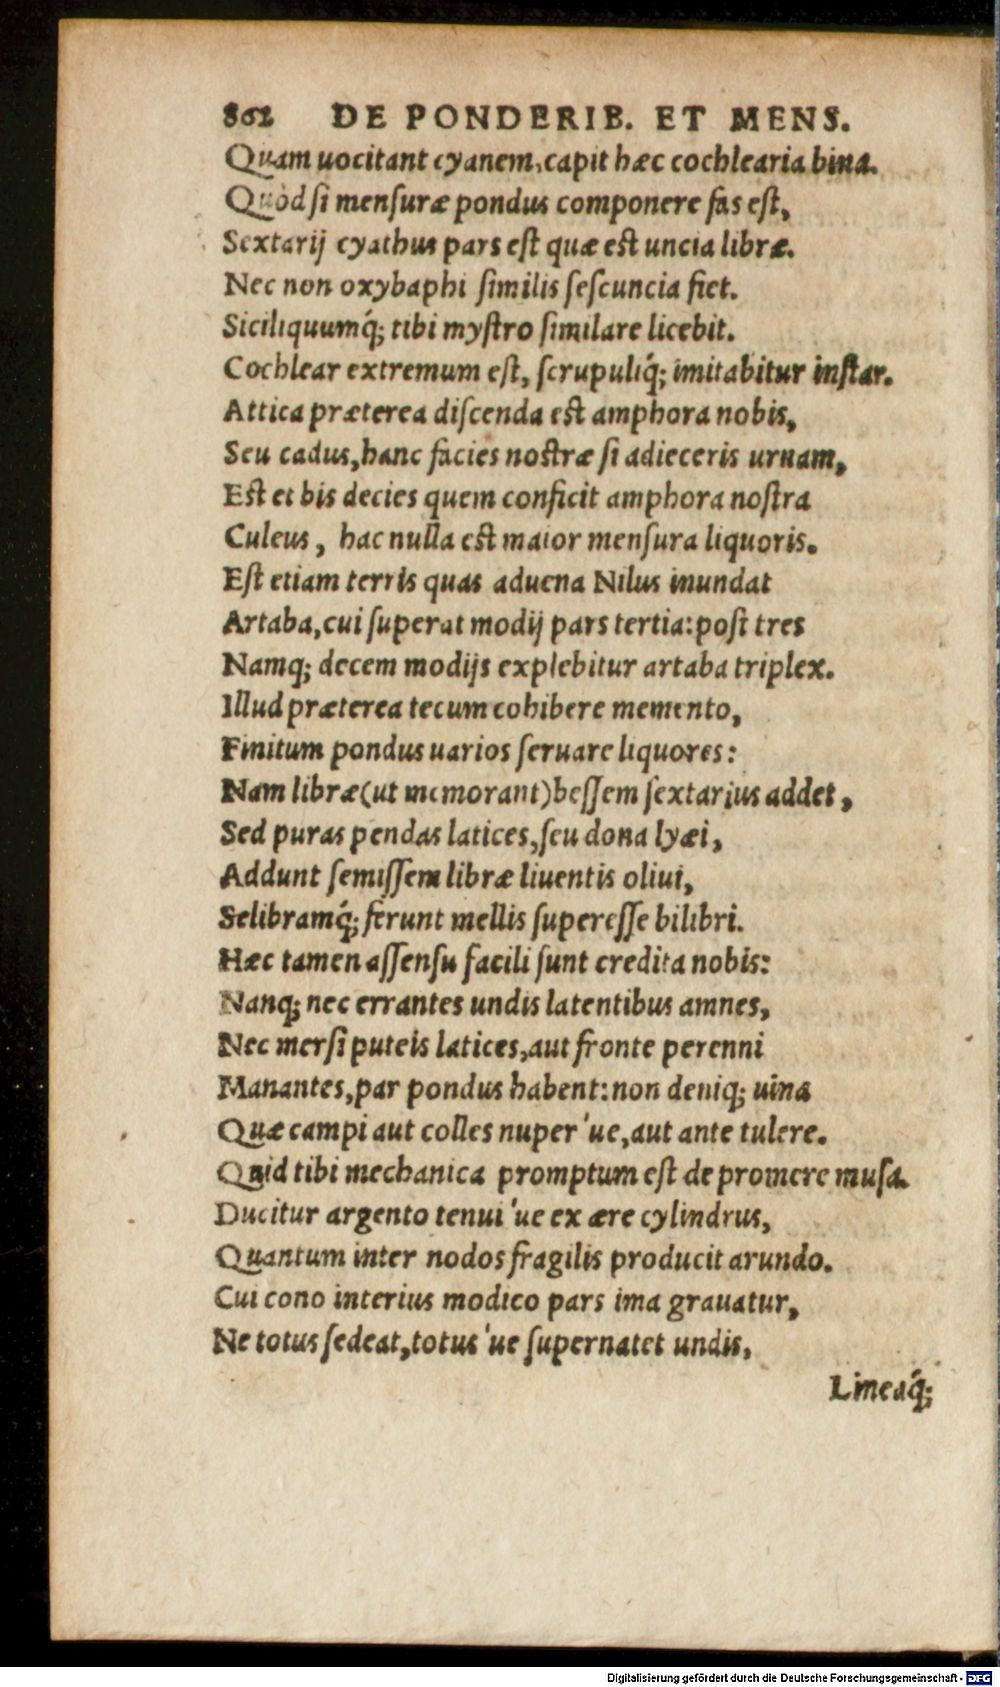 862 DE PONDERIB. ET MENS.
Quam uocitant cyanem, capit hæc cochlearia bina.
Quòd ſi menſuræ pondus componere fas eſt,
Sextarij cyathus pars eſt quæ eſt uncia libræ.
Nec non oxybaphi ſimilis ſeſcuncia fiet.
Siciliquumq́; tibi myſtro ſimilare licebit.
Cochlear extremum eſt, ſcrupuliq́; imitabitur inſtar.
Attica præterea diſcenda eſt amphora nobis,
Seu cadus, hanc facies noſtræ ſi adieceris urnam,
Eſt et bis decies quem conficit amphora noſtra
Culeus, hac nulla eſt maior menſura liquoris.
Eſt etiam terris quas aduena Nilus inundat
Artaba, cui ſuperat modij pars tertia: poſt tres
Namq; decem modijs explebitur artaba triplex.
Illud præterea tecum cohibere memento,
Finitum pondus uarios ſeruare liquores:
Nam libræ (ut memorant) beſſem ſextarius addet,
Sed puras pendas latices, ſeu dona lyæi,
Addunt ſemiſſem libræ liuentis oliui,
Selibramq́; ferunt mellis ſupereſſe bilibri.
Hæc tamen aſſenſu facili ſunt credita nobis:
Nanq; nec errantes undis latentibus amnes,
Nec merſi puteis latices, aut fronte perenni
Manantes, par pondus habent: non deniq; uina
Quæ campi aut colles nuper 've, aut ante tulere.
Quid tibi mechanica promptum eſt de promere muſa.
Ducitur argento tenui 'ue ex ære cylindrus,
Quantum inter nodos fragilis producit arundo.
Cui cono interius modico pars ima grauatur,
Ne totus ſedeat, totus 'ue ſupernatet undis,
Lineaq́;
Digitalisierung gefördert durch die Deutsche Forschungsgemeinschaft - DFG